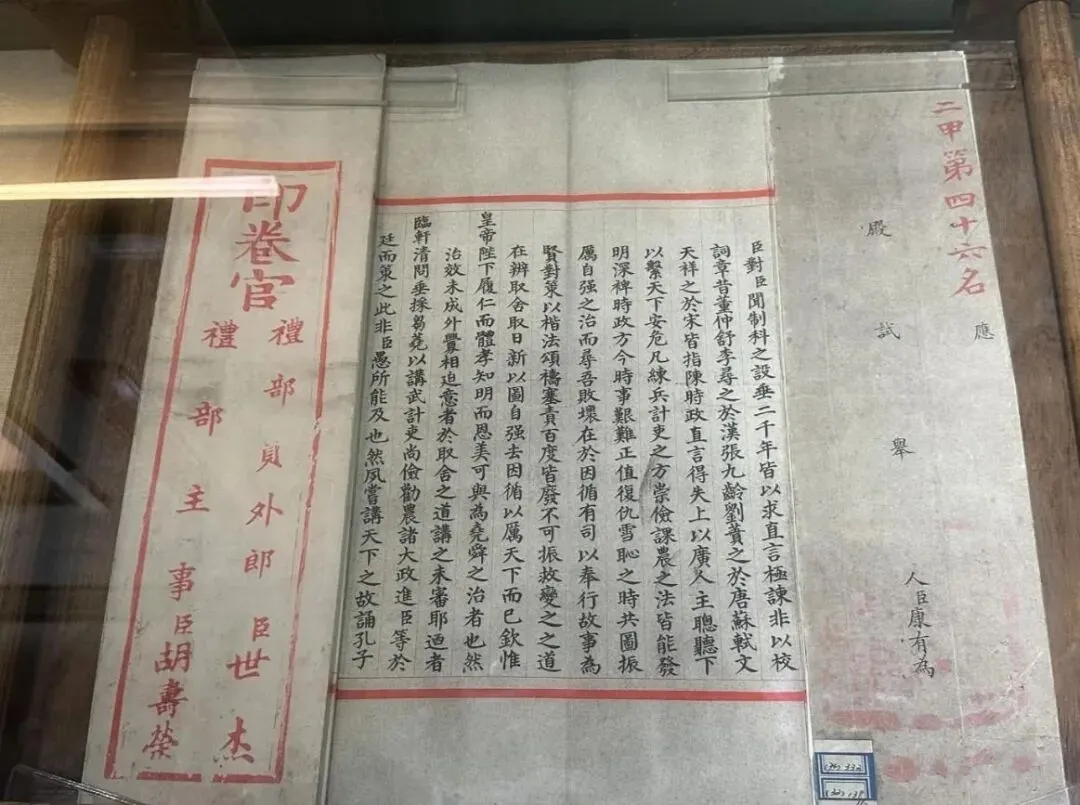 二甲第四十六名
應
殿試舉人臣康有為
臣對臣聞制科之設垂二千年皆以求直言極諫非以校
詞章昔董仲舒李尋之於漢張九齡劉蕡之於唐蘇軾文
天祥之於宋皆指陳時政直言得失上以廣人主聰聽下
以繫天下安危凡練兵計吏之方崇儉課農之法皆能發
明深裨時政方今時事艱難正值復仇雪恥之時共圖振
厲自强之治而尋吾敗壞在於因循有司以奉行故事為
賢對策以楷法頌禱塞責百度皆廢不可振救變之之道
在辨取舍取日新以圖自强去因循以厲天下而已欽惟
皇帝陛下履仁而體孝知明而恩美可與為堯舜之治者也然
治效未成外釁相迫意者於取舍之道講之未審耶迺者
臨軒清問垂採芻蕘以講武計吏尚儉勸農諸大政進臣等於
廷而策之此非臣愚所能及也然夙嘗講天下之故誦孔子
印卷官
禮部員外郎臣世杰
禮部主事臣胡壽榮